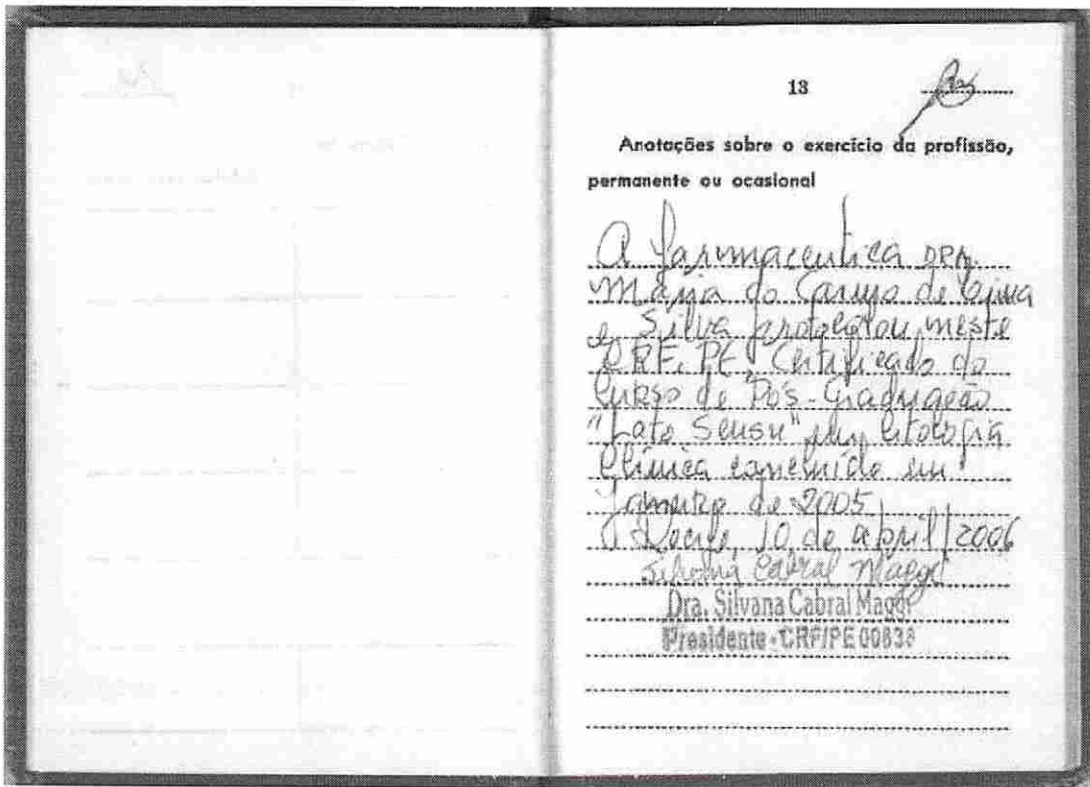 13
Anotações sobre o exercício da profissão,
permanente ou ocasional
A farmaceutica DRA.
Maria do Carmo de Lima
e Silva protocolou neste
CRF. PE, Certificado do
Curso de Pós-Graduação
"Lato Sensu" em Citologia
Clínica concluido em
Janeiro de 2005
Recife, 10 de abril/2006
Silvana Cabral Maggi
Dra. Silvana Cabral Maggi
Presidente - CRF/PE 00838